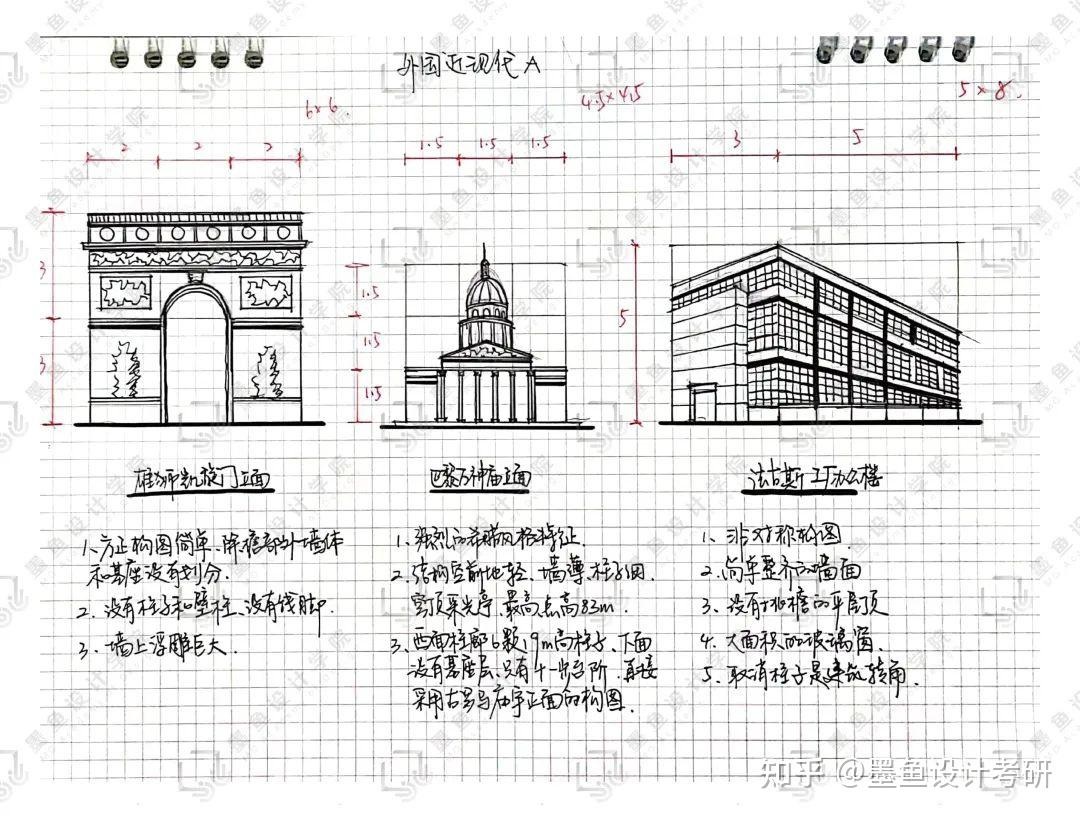 外国近现代A
6×6.
4.5×4.5
5×8.
2 2 2
1.5 1.5 1.5
3 5
3
3
1.5
1.5
1.5
5
雄狮凯旋门立面
巴黎万神庙立面
法古斯工厂办公楼
1、方正构图简单、除檐部外墙体
和基座没有划分.
2、没有柱子和壁柱、没有线脚.
3、墙上浮雕巨大.
1、强烈的希腊风格特征.
2、结构空前地轻、墙薄、柱子细.
穹顶采光亭、最高点高83m.
3、西面柱廊6颗19m高柱子、下面
没有基座层、只有十一步台阶、直接
采用古罗马庙宇正面的构图.
1、非对称构图
2、简单整齐的墙面
3、没有挑檐的平屋顶
4、大面积的玻璃窗
5、取消柱子是建筑转角.
知乎 @墨鱼设计考研
墨鱼设计学院
MO ACADEMY